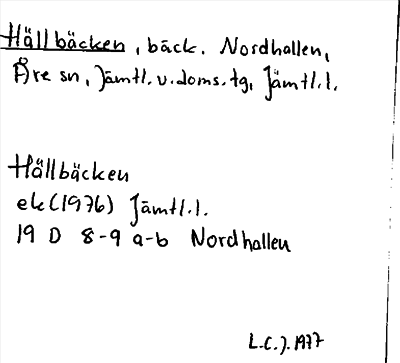 Hällbäcken, bäck. Nordhallen,
Åre sn, Jämtl. v. doms. tg, Jämtl. l.
Hällbäcken
ek (1976) Jämtl. l.
19 D 8-9 a-b Nordhallen
L.C.J. 1977